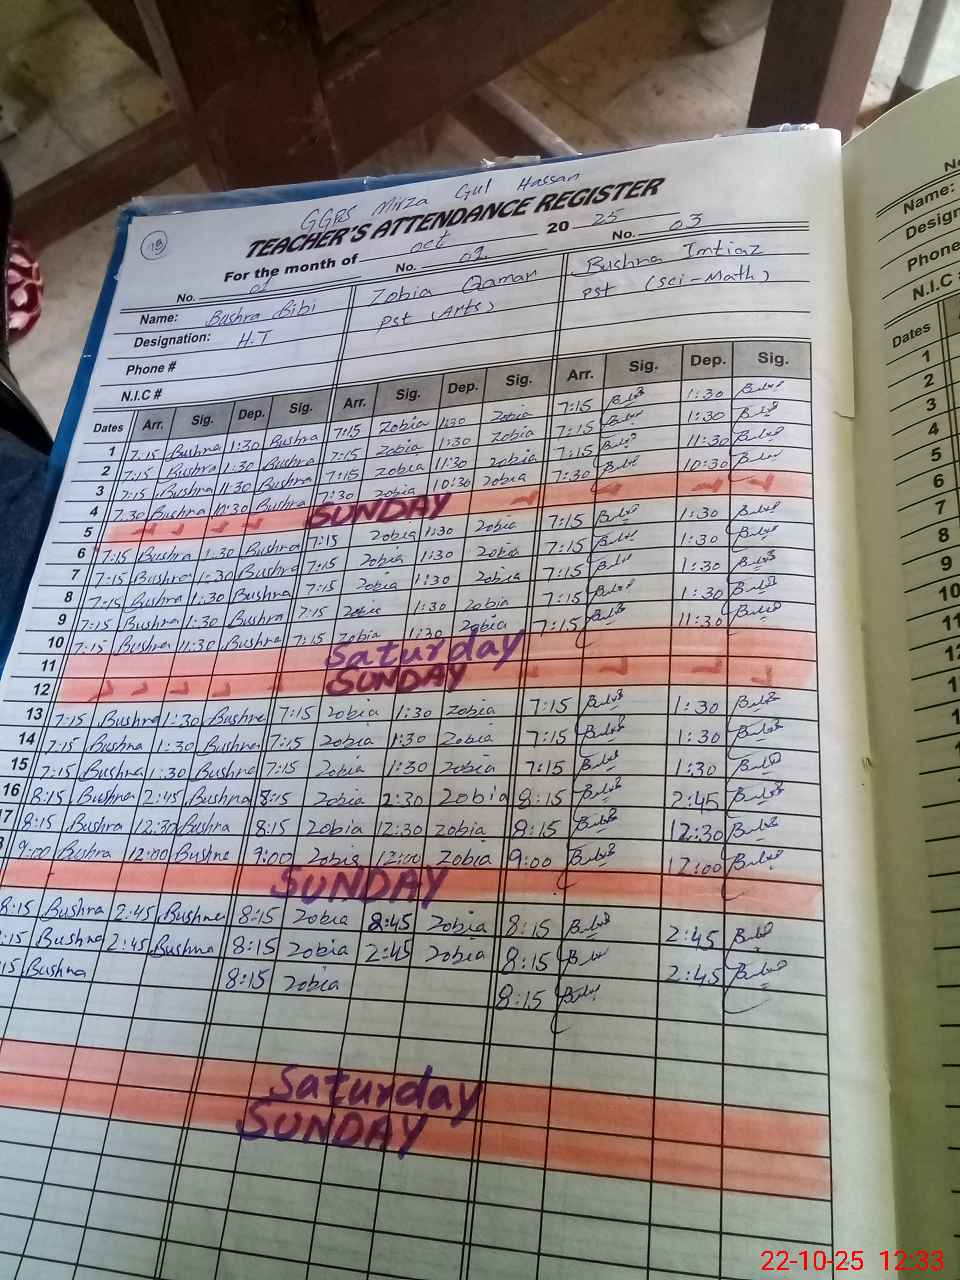 GGPS Mirza Gul Hassan
18 TEACHER'S ATTENDANCE REGISTER
For the month of oct 20 25
No. 01 No. 02 No. 03
Name: Bushra Bibi Zobia Qamar Bushra Imtiaz
Designation: H.T Pst (Arts) Pst (Sci-Math)
Phone #
N.I.C #
Dates Arr. Sig. Dep. Sig. Arr. Sig. Dep. Sig. Arr. Sig. Dep. Sig.
1 7:15 Bushra 1:30 Bushra 7:15 Zobia 1:30 Zobia 7:15 1:30
2 7:15 Bushra 1:30 Bushra 7:15 Zobia 1:30 Zobia 7:15 1:30
3 7:15 Bushra 11:30 Bushra 7:15 Zobia 11:30 Zobia 7:15 11:30
4 7:30 Bushra 10:30 Bushra 7:30 Zobia 10:30 Zobia 7:30 10:30
5 SUNDAY
6 7:15 Bushra 1:30 Bushra 7:15 Zobia 1:30 Zobia 7:15 1:30
7 7:15 Bushra 1:30 Bushra 7:15 Zobia 1:30 Zobia 7:15 1:30
8 7:15 Bushra 1:30 Bushra 7:15 Zobia 1:30 Zobia 7:15 1:30
9 7:15 Bushra 1:30 Bushra 7:15 Zobia 1:30 Zobia 7:15 1:30
10 7:15 Bushra 11:30 Bushra 7:15 Zobia 11:30 Zobia 7:15 11:30
11 Saturday
12 SUNDAY
13 7:15 Bushra 1:30 Bushra 7:15 Zobia 1:30 Zobia 7:15 1:30
14 7:15 Bushra 1:30 Bushra 7:15 Zobia 1:30 Zobia 7:15 1:30
15 7:15 Bushra 1:30 Bushra 7:15 Zobia 1:30 Zobia 7:15 1:30
16 8:15 Bushra 2:45 Bushra 8:15 Zobia 2:30 Zobia 8:15 2:45
17 8:15 Bushra 12:30 Bushra 8:15 Zobia 12:30 Zobia 8:15 12:30
9:00 Bushra 12:00 Bushra 9:00 Zobia 12:00 Zobia 9:00 12:00
SUNDAY
8:15 Bushra 2:45 Bushra 8:15 Zobia 2:45 Zobia 8:15 2:45
:15 Bushra 2:45 Bushra 8:15 Zobia 2:45 Zobia 8:15 2:45
15 Bushra 8:15 Zobia 8:15
Saturday
SUNDAY
Name:
Phone
N.I.C
Dates
1
2
3
4
5
6
7
8
9
10
11
22-10-25 12:33